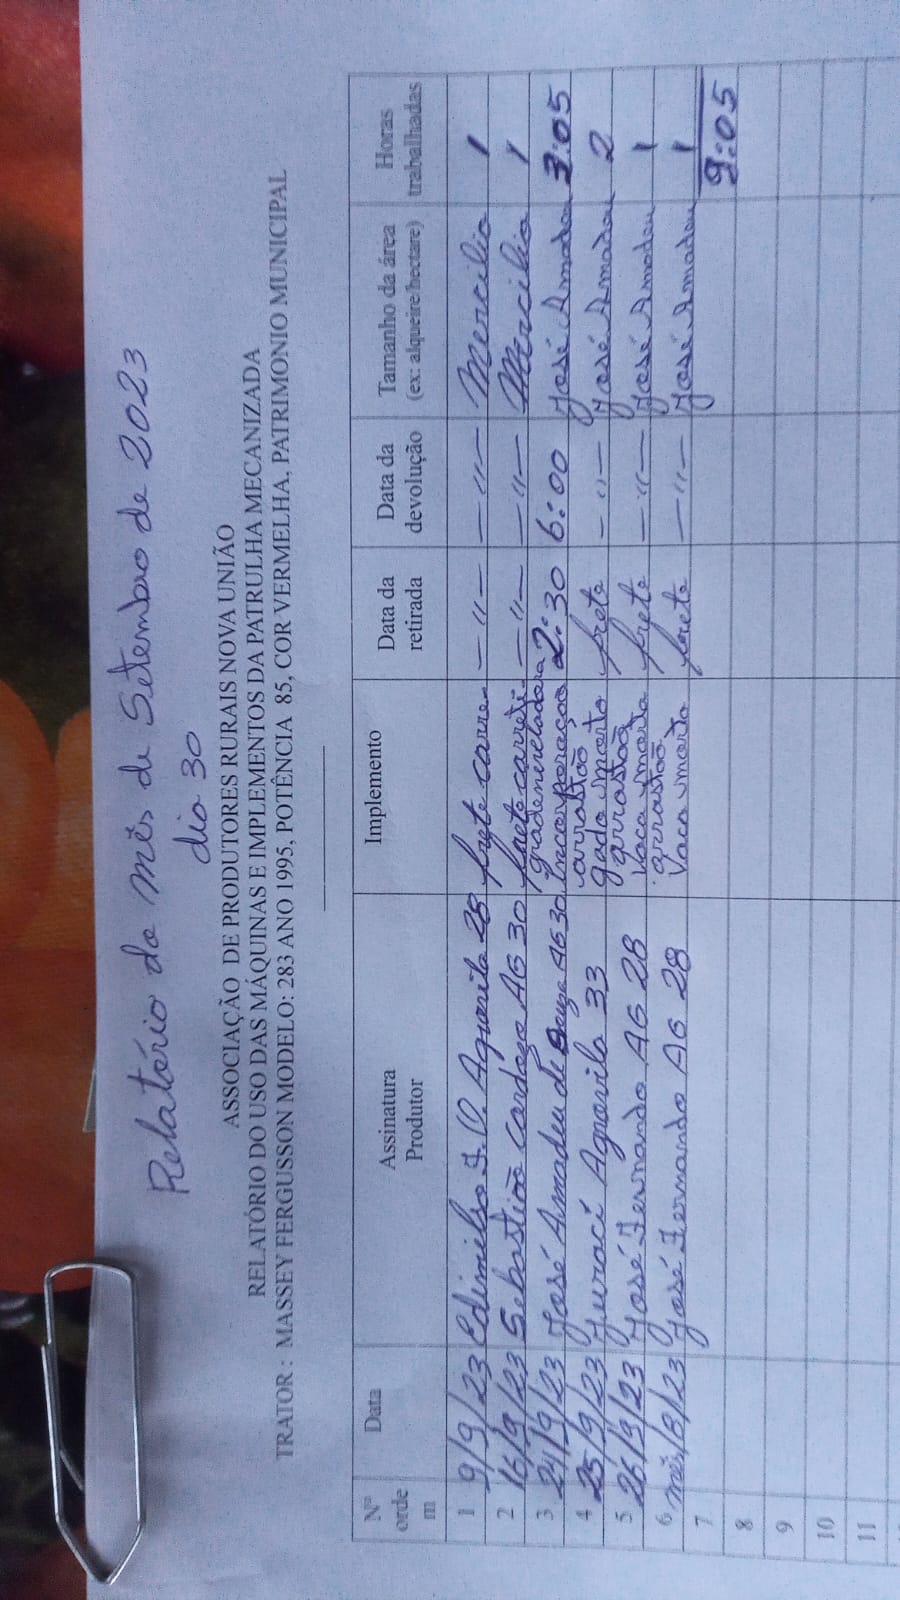 Relatório do mês de Setembro de 2023
dia 30
ASSOCIAÇÃO DE PRODUTORES RURAIS NOVA UNIÃO
RELATÓRIO DO USO DAS MÁQUINAS E IMPLEMENTOS DA PATRULHA MECANIZADA
TRATOR: MASSEY FERGUSSON MODELO: 283 ANO 1995, POTÊNCIA 85, COR VERMELHA, PATRIMONIO MUNICIPAL
Nº ordem Data Assinatura Produtor Implemento Data da retirada Data da devolução Tamanho da área (ex: alqueire/hectare) Horas trabalhadas
1 9/9/23 Edimilso J. O. Agrovila 28 frete carre - " - - " - Mercilio 1
2 16/9/23 Sebastião Cardozo AG 30 frete carreti - " - - " - Mercilio 1
3 24/9/23 José Amadeu de Souza AG 30 gradeneveladora Incorporaçao 2:30 6:00 José Amadeu 3:05
4 25/9/23 Juraci Agrovila 33 arrastão gado morto frete - " - José Amadeu 2
5 26/9/23 José Fernando AG 28 arrastão Vaca morta frete - " - José Amadeu 1
6 mês/9/23 José Fernando AG 28 arrastão Vaca morta frete - " - José Amadeu 1
7 9:05
8
9
10
11